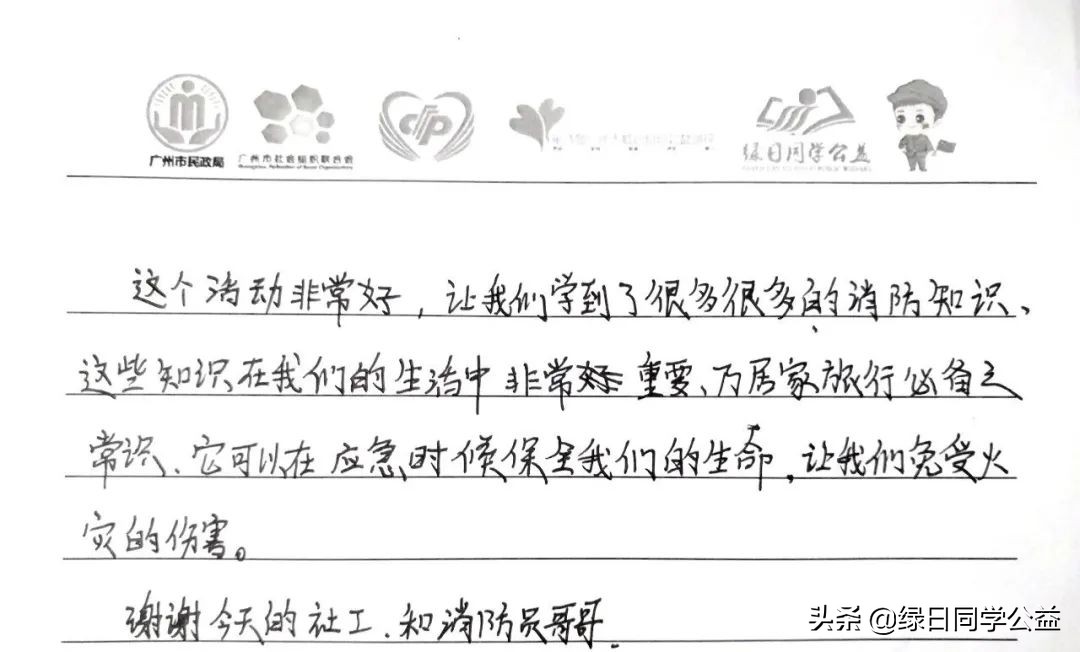 广州市民政局
广州市社会组织联合会
绿日同学公益
这个活动非常好，让我们学到了很多很多的消防知识、
这些知识在我们的生活中非常重要、乃居家旅行必备之
常识、它可以在应急时候保全我们的生命，让我们免受火
灾的伤害。
谢谢今天的社工、和消防员哥哥.
头条 @绿日同学公益